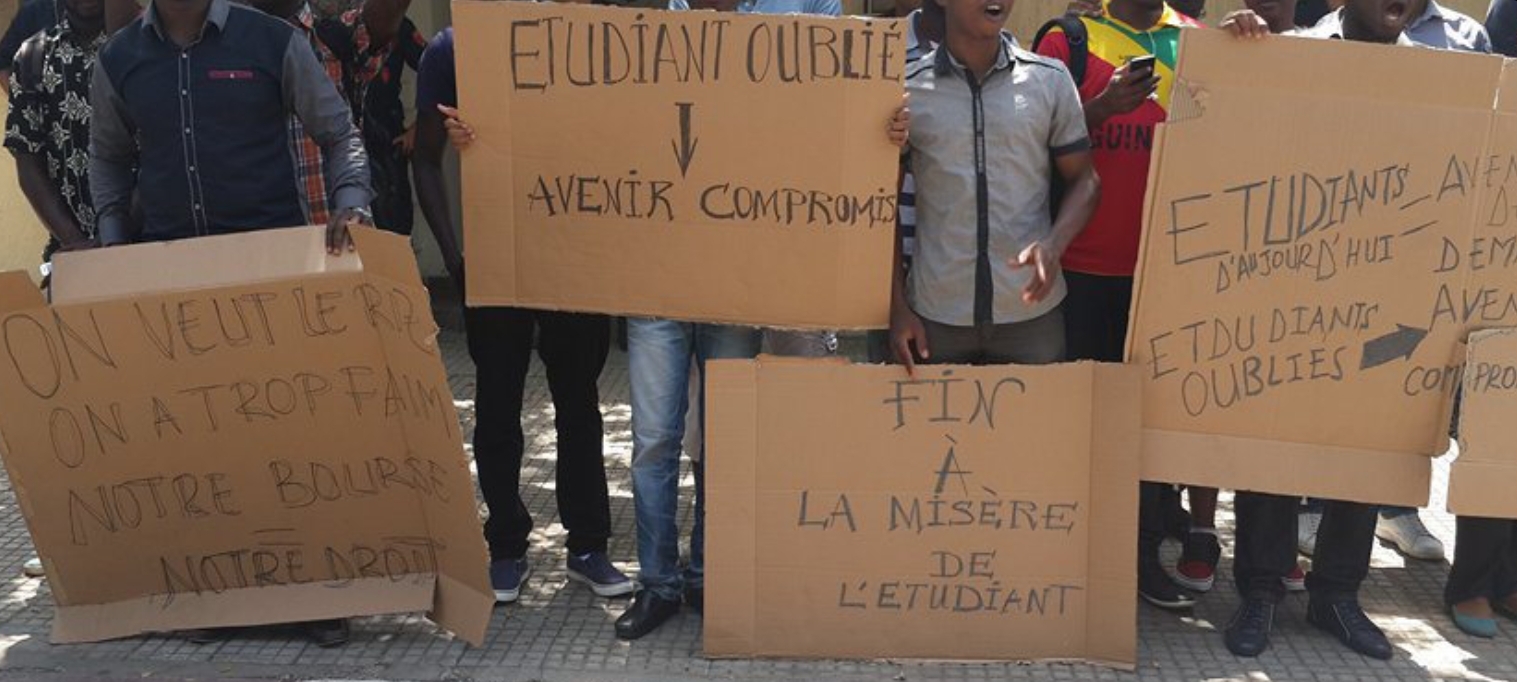 ON VEUT LE RIZ
ON A TROP FAIM
NOTRE BOURSE
=
NOTRE DROIT
ETUDIANT OUBLIÉ
↓
AVENIR COMPROMIS
FIN
À
LA MISÈRE
DE
L'ETUDIANT
GUIN
ETUDIANTS = AVEN
D'AUJOURD'HUI D-
DEM
ETDUDIANTS AVEN
OUBLIES → COMPRO